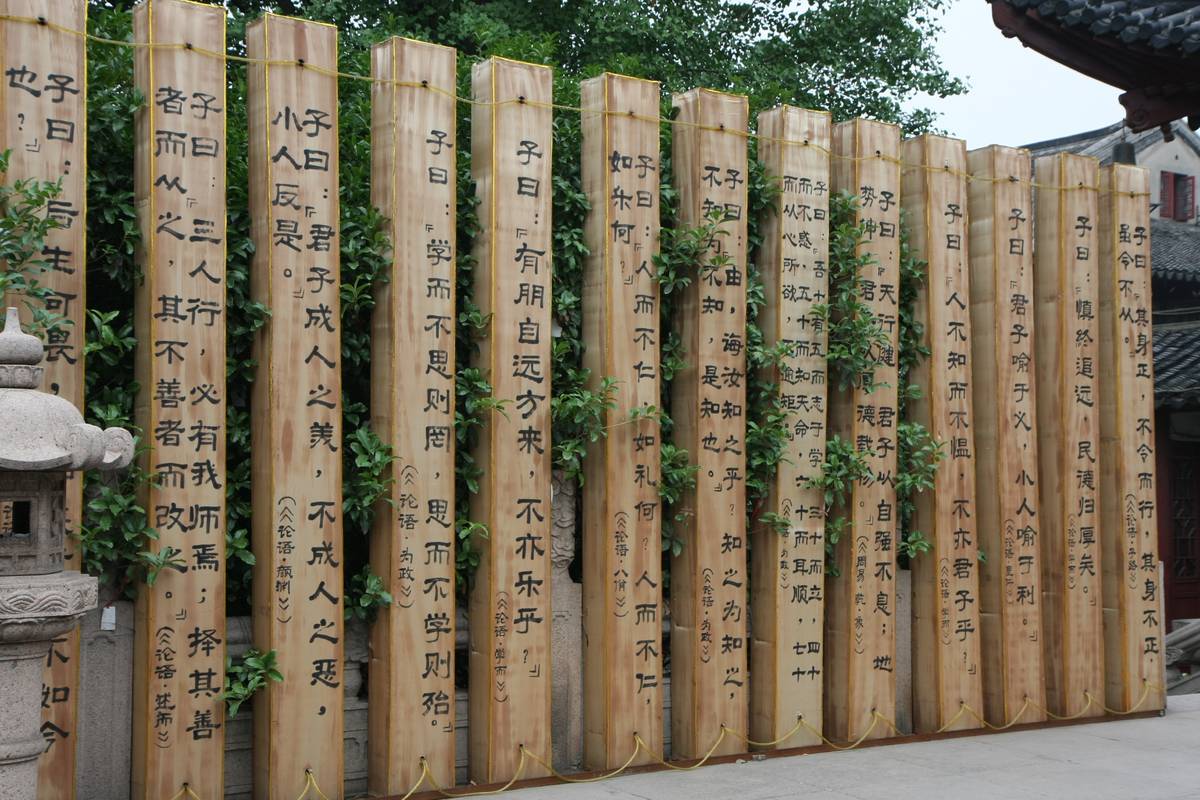 子曰:『其身正,不令而行,其身不正,
虽令不从。(《论语·子路》)
子曰:『慎终追远,民德归厚矣。
子曰:『君子喻于义,小人喻于利。』
子曰:『人不知而不愠,不亦君子乎?』(《论语·学而》)
子曰:『天行健,君子以自强不息;地
势坤,君子以厚德载物。』(《周易·乾·象》)
子曰:『吾十有五而志于学,三十而立,四十
而不惑,五十而知天命,六十而耳顺,七十
而从心所欲,不逾矩。』(《论语·为政》)
子曰:『由,诲汝知之乎?知之为知之,
不知为不知,是知也。』(《论语·为政》)
子曰:『人而不仁,如礼何?人而不仁,
如乐何?』(《论语·八佾》)
子曰:『有朋自远方来,不亦乐乎?』(《论语·学而》)
子曰:『学而不思则罔,思而不学则殆。』(《论语·为政》)
子曰:『君子成人之美,不成人之恶,
小人反是。』(《论语·颜渊》)
子曰:『三人行,必有我师焉;择其善
者而从之,其不善者而改之。』(《论语·述而》)
子曰:『后生可畏,不如今
也?』